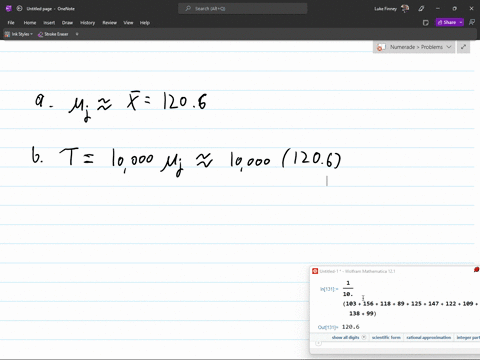 Untitled page - OneNote
Search
Luke Finney
File Home Insert Draw History View Tutorial Window Help
Share
Ink Styles Stroke Eraser
Numerade > Problems
a. μj ≈ x̄ = 120.6
b. T = 10,000 μj ≈ 10,000 (120.6)
Untitled 1 * - Wolfram Mathematica 12.1
In[131]:=
1
10.
(103 + 156 + 118 + 89 + 125 + 147 + 122 + 109 +
138 + 99)
Out[131]= 120.6
show all digits scientific form rational approximation integer part